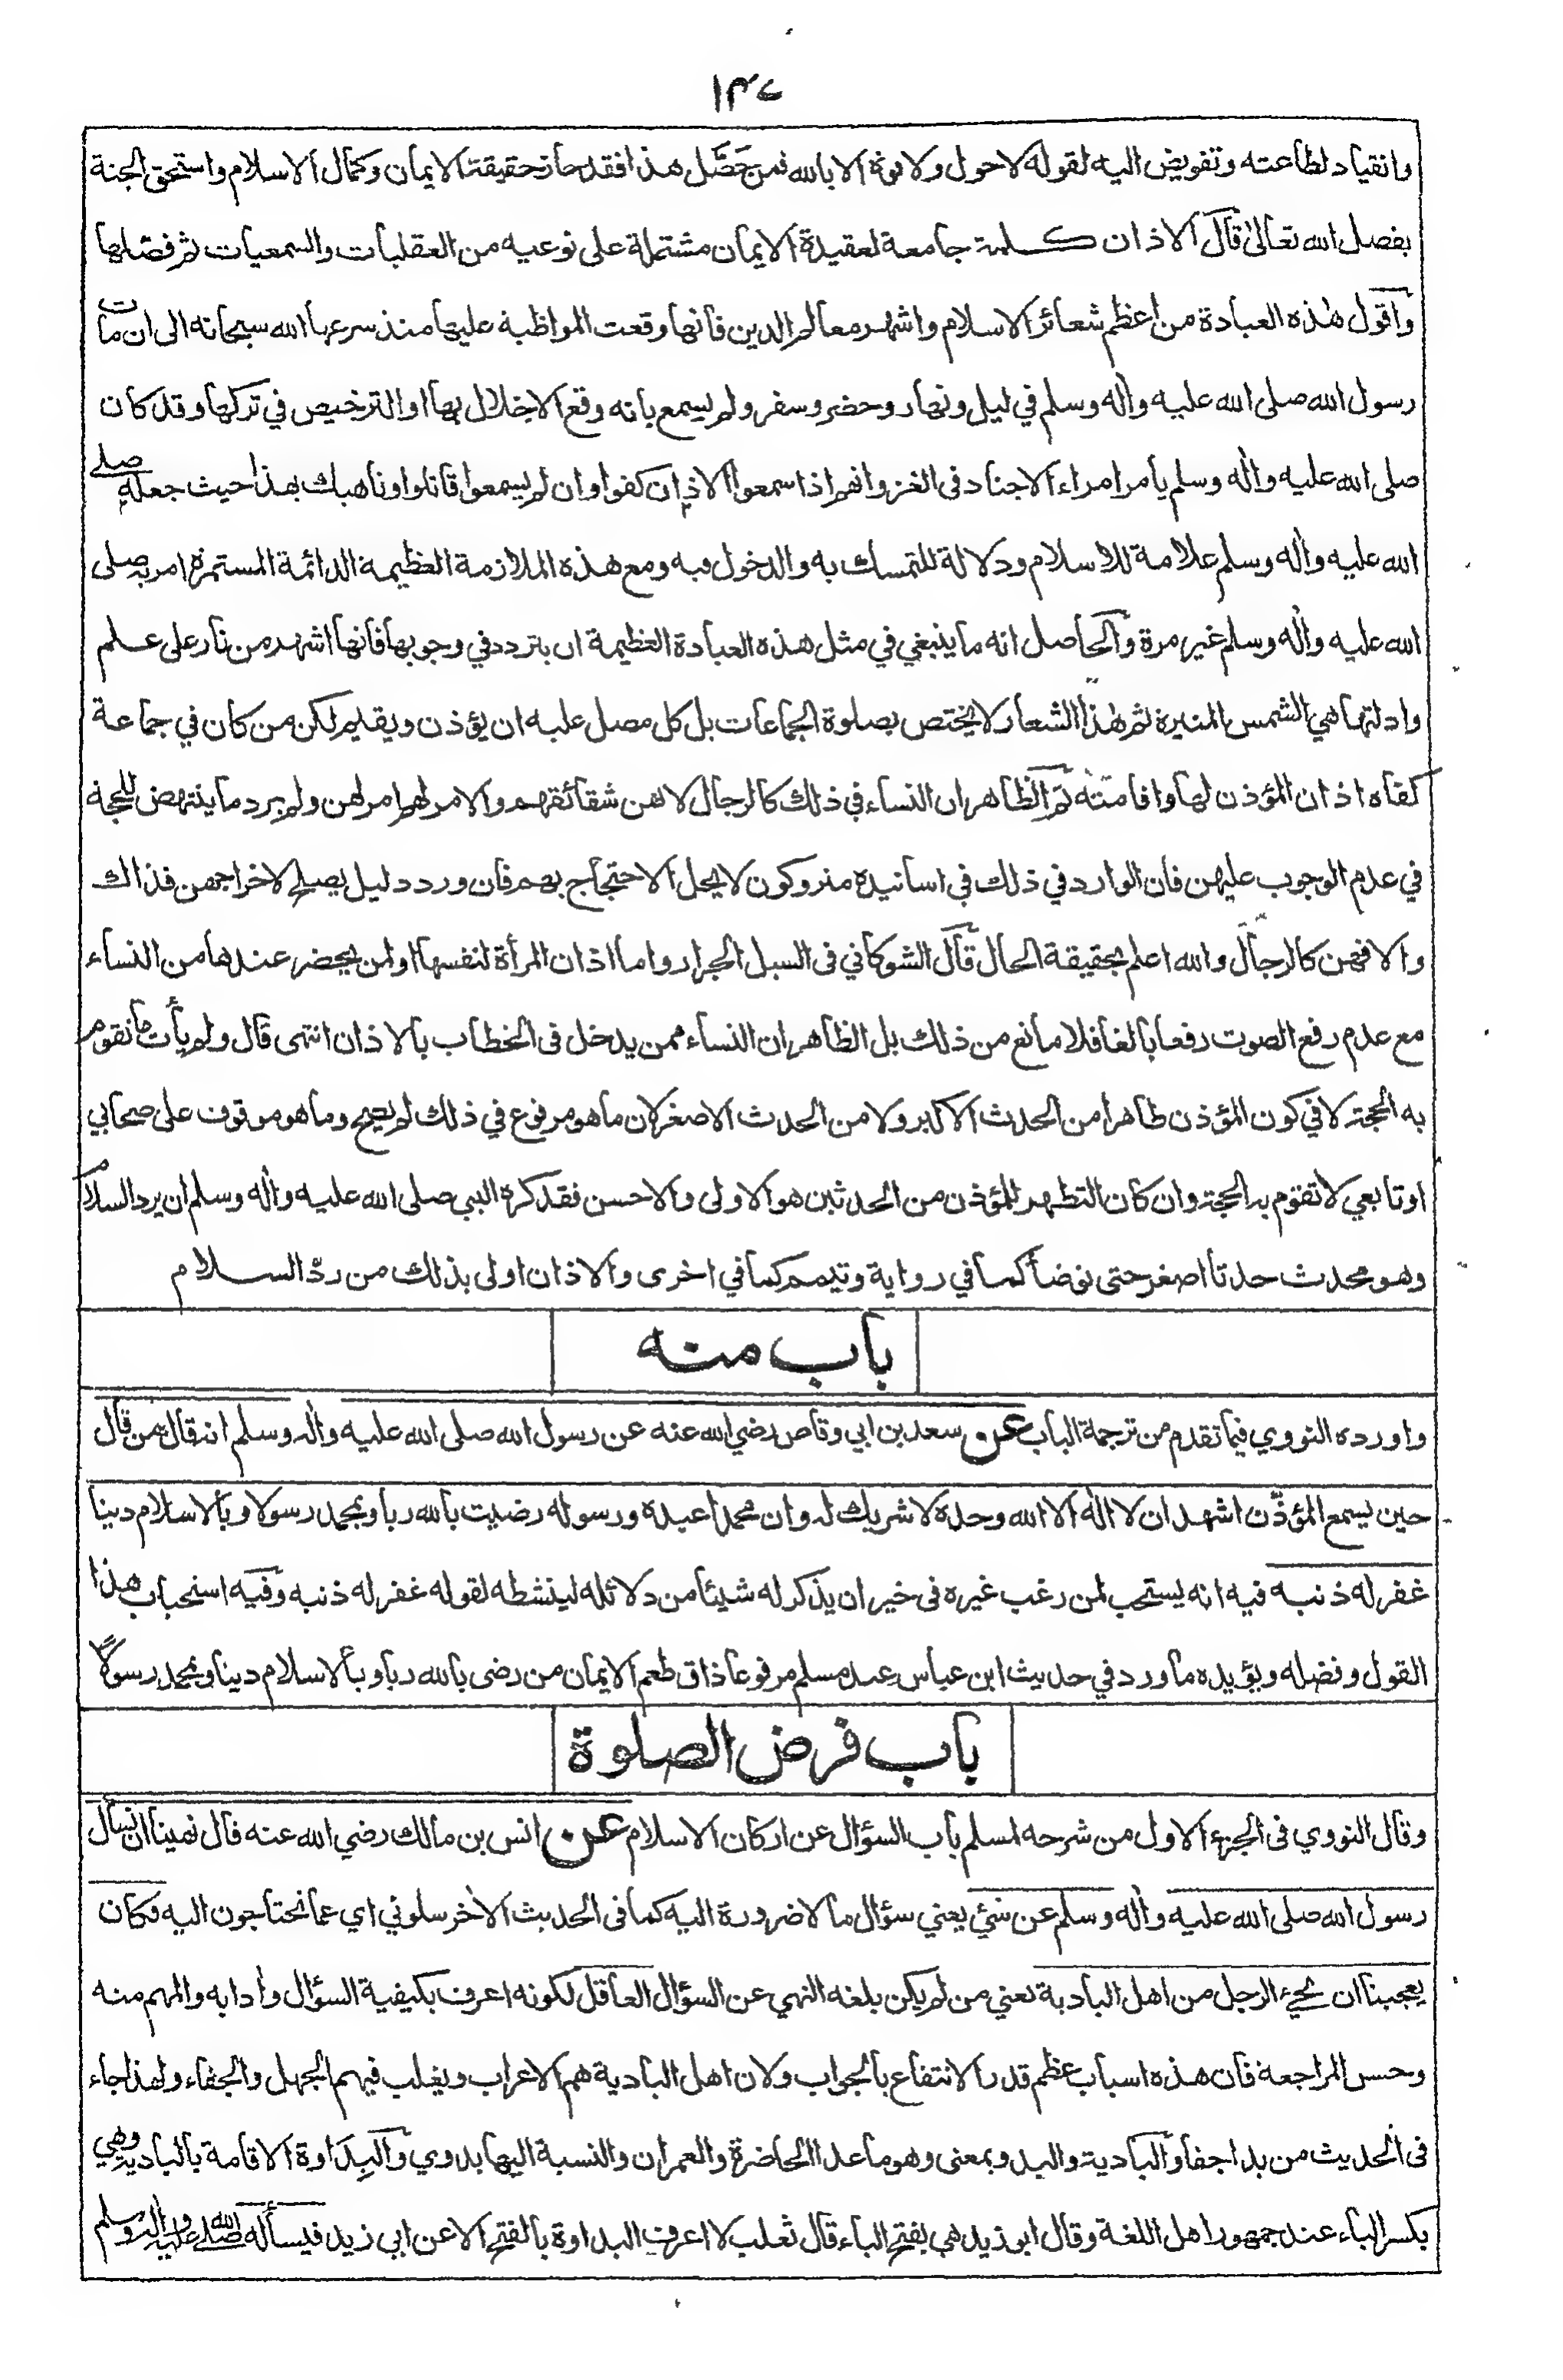 ١٣٤
وانقياد لطاعته وتفويض اليه لقوله لاحول ولا قوة الا بالله فمن حَصَّل هذا فقد حاز حقيقة الايمان وكمال الاسلام واستحق الجنة
بفضل الله تعالىٰ قال الاذان كلمة جامعة لعقيدة الايمان مشتملة على نوعيه من العقليات والسمعيات ثم فصّلها
واقول هٰذه العبادة من اعظم شعائر الاسلام واشهر معالم الدين فانها وقعت المواظبة عليها منذ شرعها الله سبحانه الى ان مات
رسول الله صلى الله عليه واٰله وسلم في ليل ونهار وحضر وسفر ولم يسمع بانه وقع الاخلال بها او الترخيص في تركها وقد كان
صلى الله عليه واٰله وسلم يامر امراء الاجناد فى الغزو انهم اذا سمعوا الاذان كفوا وان لم يسمعوا قاتلوا وناهيك بهذا حيث جعله صلى
الله عليه واٰله وسلم علامة للاسلام ودلالة للتمسك به والدخول فيه ومع هذه الملازمة العظيمة الدائمة المستمرة امر به صلى
الله عليه واٰله وسلم غير مرة والحاصل انه ما ينبغي في مثل هذه العبادة العظيمة ان يتردد في وجوبها فانها اشهر من نار على علم
وادلتها هي الشمس المنيرة ثم هٰذا الشعار لا يختص بصلوة الجماعات بل كل مصل عليه ان يؤذن ويقيم لكن من كان في جماعة
كفاه اذان المؤذن لها واقامته ثم الظاهر ان النساء في ذلك كالرجال لانهن شقائقهم والامر لهم امر لهن ولم يرد ما ينتهض للحجة
في عدم الوجوب عليهن فان الوارد في ذلك في اسانيده متروكون لا يحل الاحتجاج بهم فان ورد دليل يصلح لاخراجهن فذاك
والا فهن كالرجال والله اعلم بحقيقة الحال قال الشوكاني فى السيل الجرار واما اذان المرأة لنفسها او لمن يحضر عندها من النساء
مع عدم رفع الصوت رفعا بالغا فلا مانع من ذلك بل الظاهر ان النساء ممن يدخل فى الخطاب بالاذان انتهى قال ولم يأت ما تقوم
به الحجة لا في كون المؤذن طاهرا من الحدث الاكبر ولا من الحدث الاصغر لان ما هو مرفوع في ذلك لم يصح وما هو موقوف على صحابي
او تابعي لا تقوم به الحجة وان كان التطهر للمؤذن من الحدثين هو الاولى والاحسن فقد كره النبي صلى الله عليه واٰله وسلم ان يرد السلام
وهو محدث حدثا اصغر حتى توضأ كما في رواية وتيمم كما في اخرى والاذان اولى بذلك من ردّ السلام
باب منه
واورده النووي فيما تقدم من ترجمة الباب عن سعد بن ابي وقاص رضي الله عنه عن رسول الله صلى الله عليه واٰله وسلم انه قال من قال
حين يسمع المؤذّن اشهد ان لا اله الا الله وحده لا شريك له وان محمدا عبده ورسوله رضيت بالله ربا وبمحمد رسولا وبالاسلام دينا
غفر له ذنبه فيه انه يستحب لمن رغب غيره فى خير ان يذكر له شيئا من دلائله لينشطه لقوله غفر له ذنبه وفيه استحباب هذا
القول وفضله ويؤيده ما ورد في حديث ابن عباس عند مسلم مرفوعا ذاق طعم الايمان من رضى بالله ربا وبالاسلام دينا وبمحمد رسولًا
باب فرض الصلوة
وقال النووي فى الجزء الاول من شرحه لمسلم باب السؤال عن اركان الاسلام عن انس بن مالك رضي الله عنه قال نهينا ان نسأل
رسول الله صلى الله عليه واٰله وسلم عن شيء يعني سؤال ما لا ضرورة اليه كما فى الحديث الاٰخر سلوني اي عما تحتاجون اليه فكان
يعجبنا ان يجيء الرجل من اهل البادية يعني من لم يكن بلغه النهي عن السؤال العاقل لكونه اعرف بكيفية السؤال واٰدابه والمهم منه
وحسن المراجعة فان هذه اسباب عظم قدر الانتفاع بالجواب ولان اهل البادية هم الاعراب ويغلب فيهم الجهل والجفاء ولهذا جاء
فى الحديث من بدا جفا والبادية والبدو بمعنى وهو ما عدا الحاضرة والعمران والنسبة اليها بدوي والبِداوة الاقامة بالبادية وهي
بكسر الباء عند جمهور اهل اللغة وقال ابو زيد هي بفتح الباء قال ثعلب لا اعرف البداوة بالفتح الا عن ابي زيد فيسأله صلى الله عليه واٰله وسلم